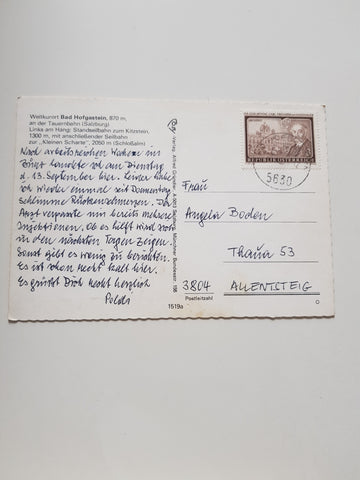 Weltkurort Bad Hofgastein, 870 m,
an der Tauernbahn (Salzburg)
Links am Hang: Standseilbahn zum Kitzstein,
1300 m, mit anschließender Seilbahn
zur „Kleinen Scharte", 2050 m (Schloßalm)
Nach arbeitsreichen Wochen im
landete ich am Dienstag
d. 13. September hier. Leider habe
ich wieder einmal seit Donnerstag
schlimme Rückenschmerzen. Der
Arzt verpasste mir bereits mehrere
Injektionen. Ob es hilft wird sich
in den nächsten Tagen zeigen.
Sonst gibt es wenig zu berichten.
Es ist schon recht kalt hier.
Es grüßt Dich recht herzlich
Poldi
Verlag Alfred
Salzburg, Münchner Bundesstr. 156
1519a
REPUBLIK ÖSTERREICH
5630
Frau
Angela Boden
Thaua 53
3804 ALLENTSTEIG
Postleitzahl